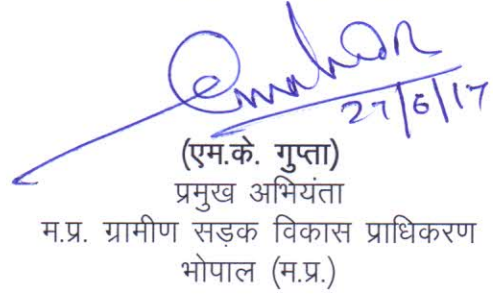 27/6/17
(एम.के. गुप्ता)
प्रमुख अभियंता
म.प्र. ग्रामीण सड़क विकास प्राधिकरण
भोपाल (म.प्र.)